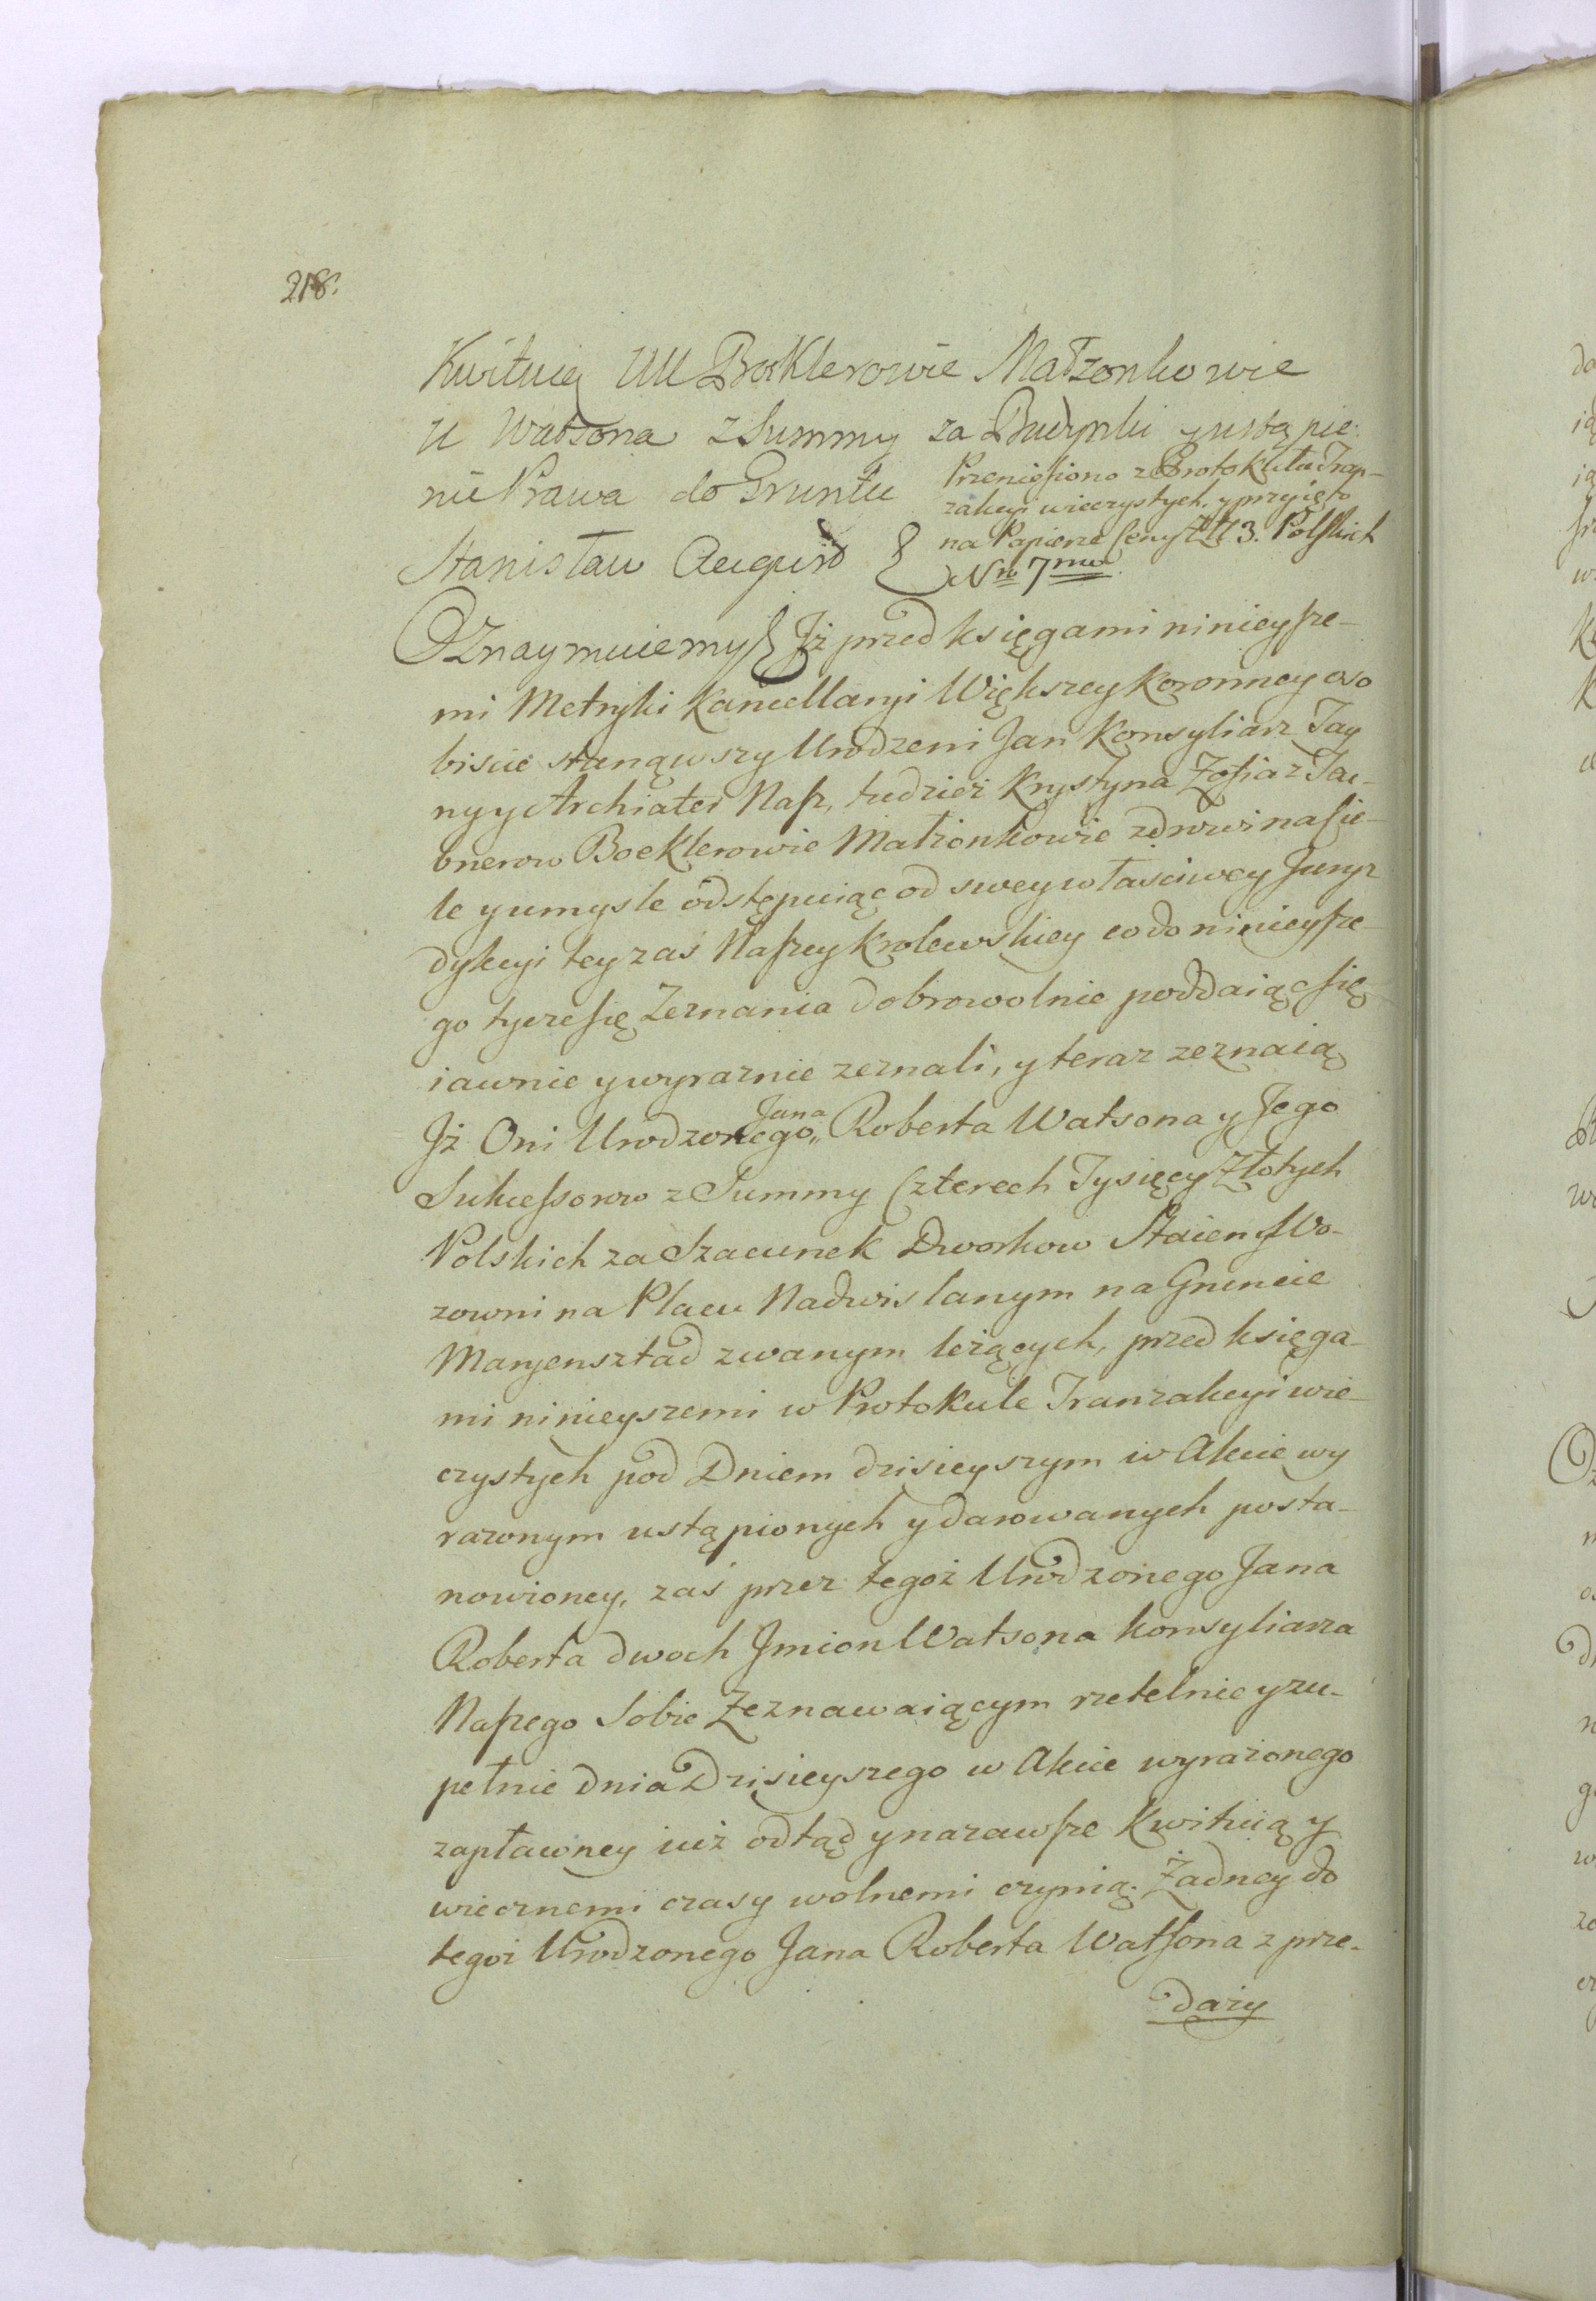 218.
Kwituią UU Boeklerowie Małżonkowie
U Watsona z Summy za Budynki y ustąpie-
nie Prawa do Gruntu
Przeniesiono z Protokułu Tran-
zakcyi wieczystych, y przyięto
na Papierze Ceny Złł 3. Polskich
Nro 7mo
Stanisław August
Oznaymuiemy Jż przed księgami ninieysze-
mi Metryki Kancellaryi Większey Koronney oso
biscie stanąwszy Urodzeni Jan Konsyliarz Tay
ny y Archiater Nasz, tudzież Krystyna Zofia z Tau-
bnerow Boeklerowie Małżonkowie zdrowi na cie-
le y umysle odstępuiąc od swey własciwey Juryz
dykcyi tey zaś Naszey Krolewskiey co do ninieysze-
go tycze się Zeznania dobrowolnie poddaiąc się
iawnie y wyraznie zeznali, y teraz zeznaią
Jż Oni Urodzonego Jana Roberta Watsona y Jego
Sukcessorow z Summy Czterech Tysięcy Złotych
Polskich za Szacunek Dworkow Staien y Wo-
zowni na Placu Nadwislanym na Gruncie
Maryensztad zwanym leżących, przed księga-
mi ninieyszemi w Protokule Tranzakcyi wie-
czystych pod Dniem dzisieyszym w Akcie wy
rażonym ustąpionych y darowanych posta-
nowioney, zaś przez tegoż Urodzonego Jana
Roberta dwoch Jmion Watsona Konsyliarza
Naszego Sobie Zeznawaiącym rzetelnie y zu-
pełnie dnia Dzisieyszego w Akcie wyrażonego
zapłaconey iuż odtąd y na zawsze Kwituią y
wiecznemi czasy wolnemi czynią. Żadney do
tegoż Urodzonego Jana Roberta Watsona z prze-
daży